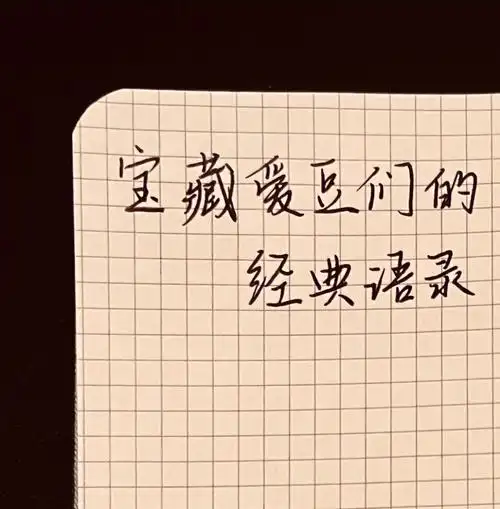 宝藏爱豆们的
经典语录